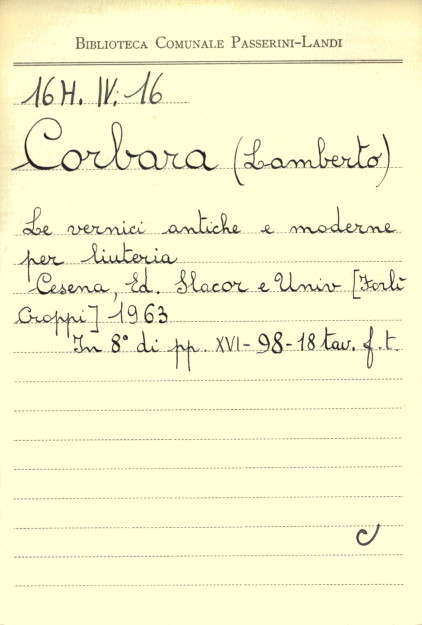 BIBLIOTECA COMUNALE PASSERINI-LANDI
16 H. IV. 16
Corbara (Lamberto)
Le vernici antiche e moderne
per liuteria
Cesena, Ed. Slacor e Univ [Forlì
Croppi] 1963
In 8° di pp. XVI-98-18 tav. f.t.
C